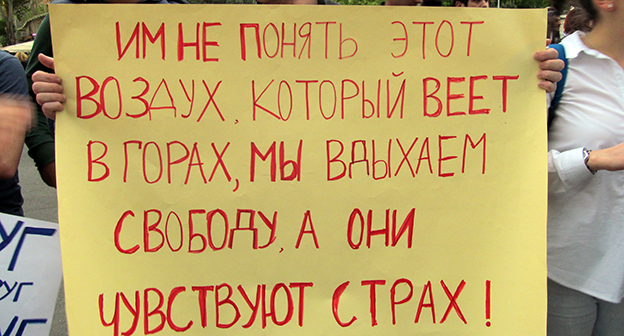 ИМ НЕ ПОНЯТЬ ЭТОТ
ВОЗДУХ, КОТОРЫЙ ВЕЕТ
В ГОРАХ, МЫ ВДЫХАЕМ
СВОБОДУ, А ОНИ
ЧУВСТВУЮТ СТРАХ!